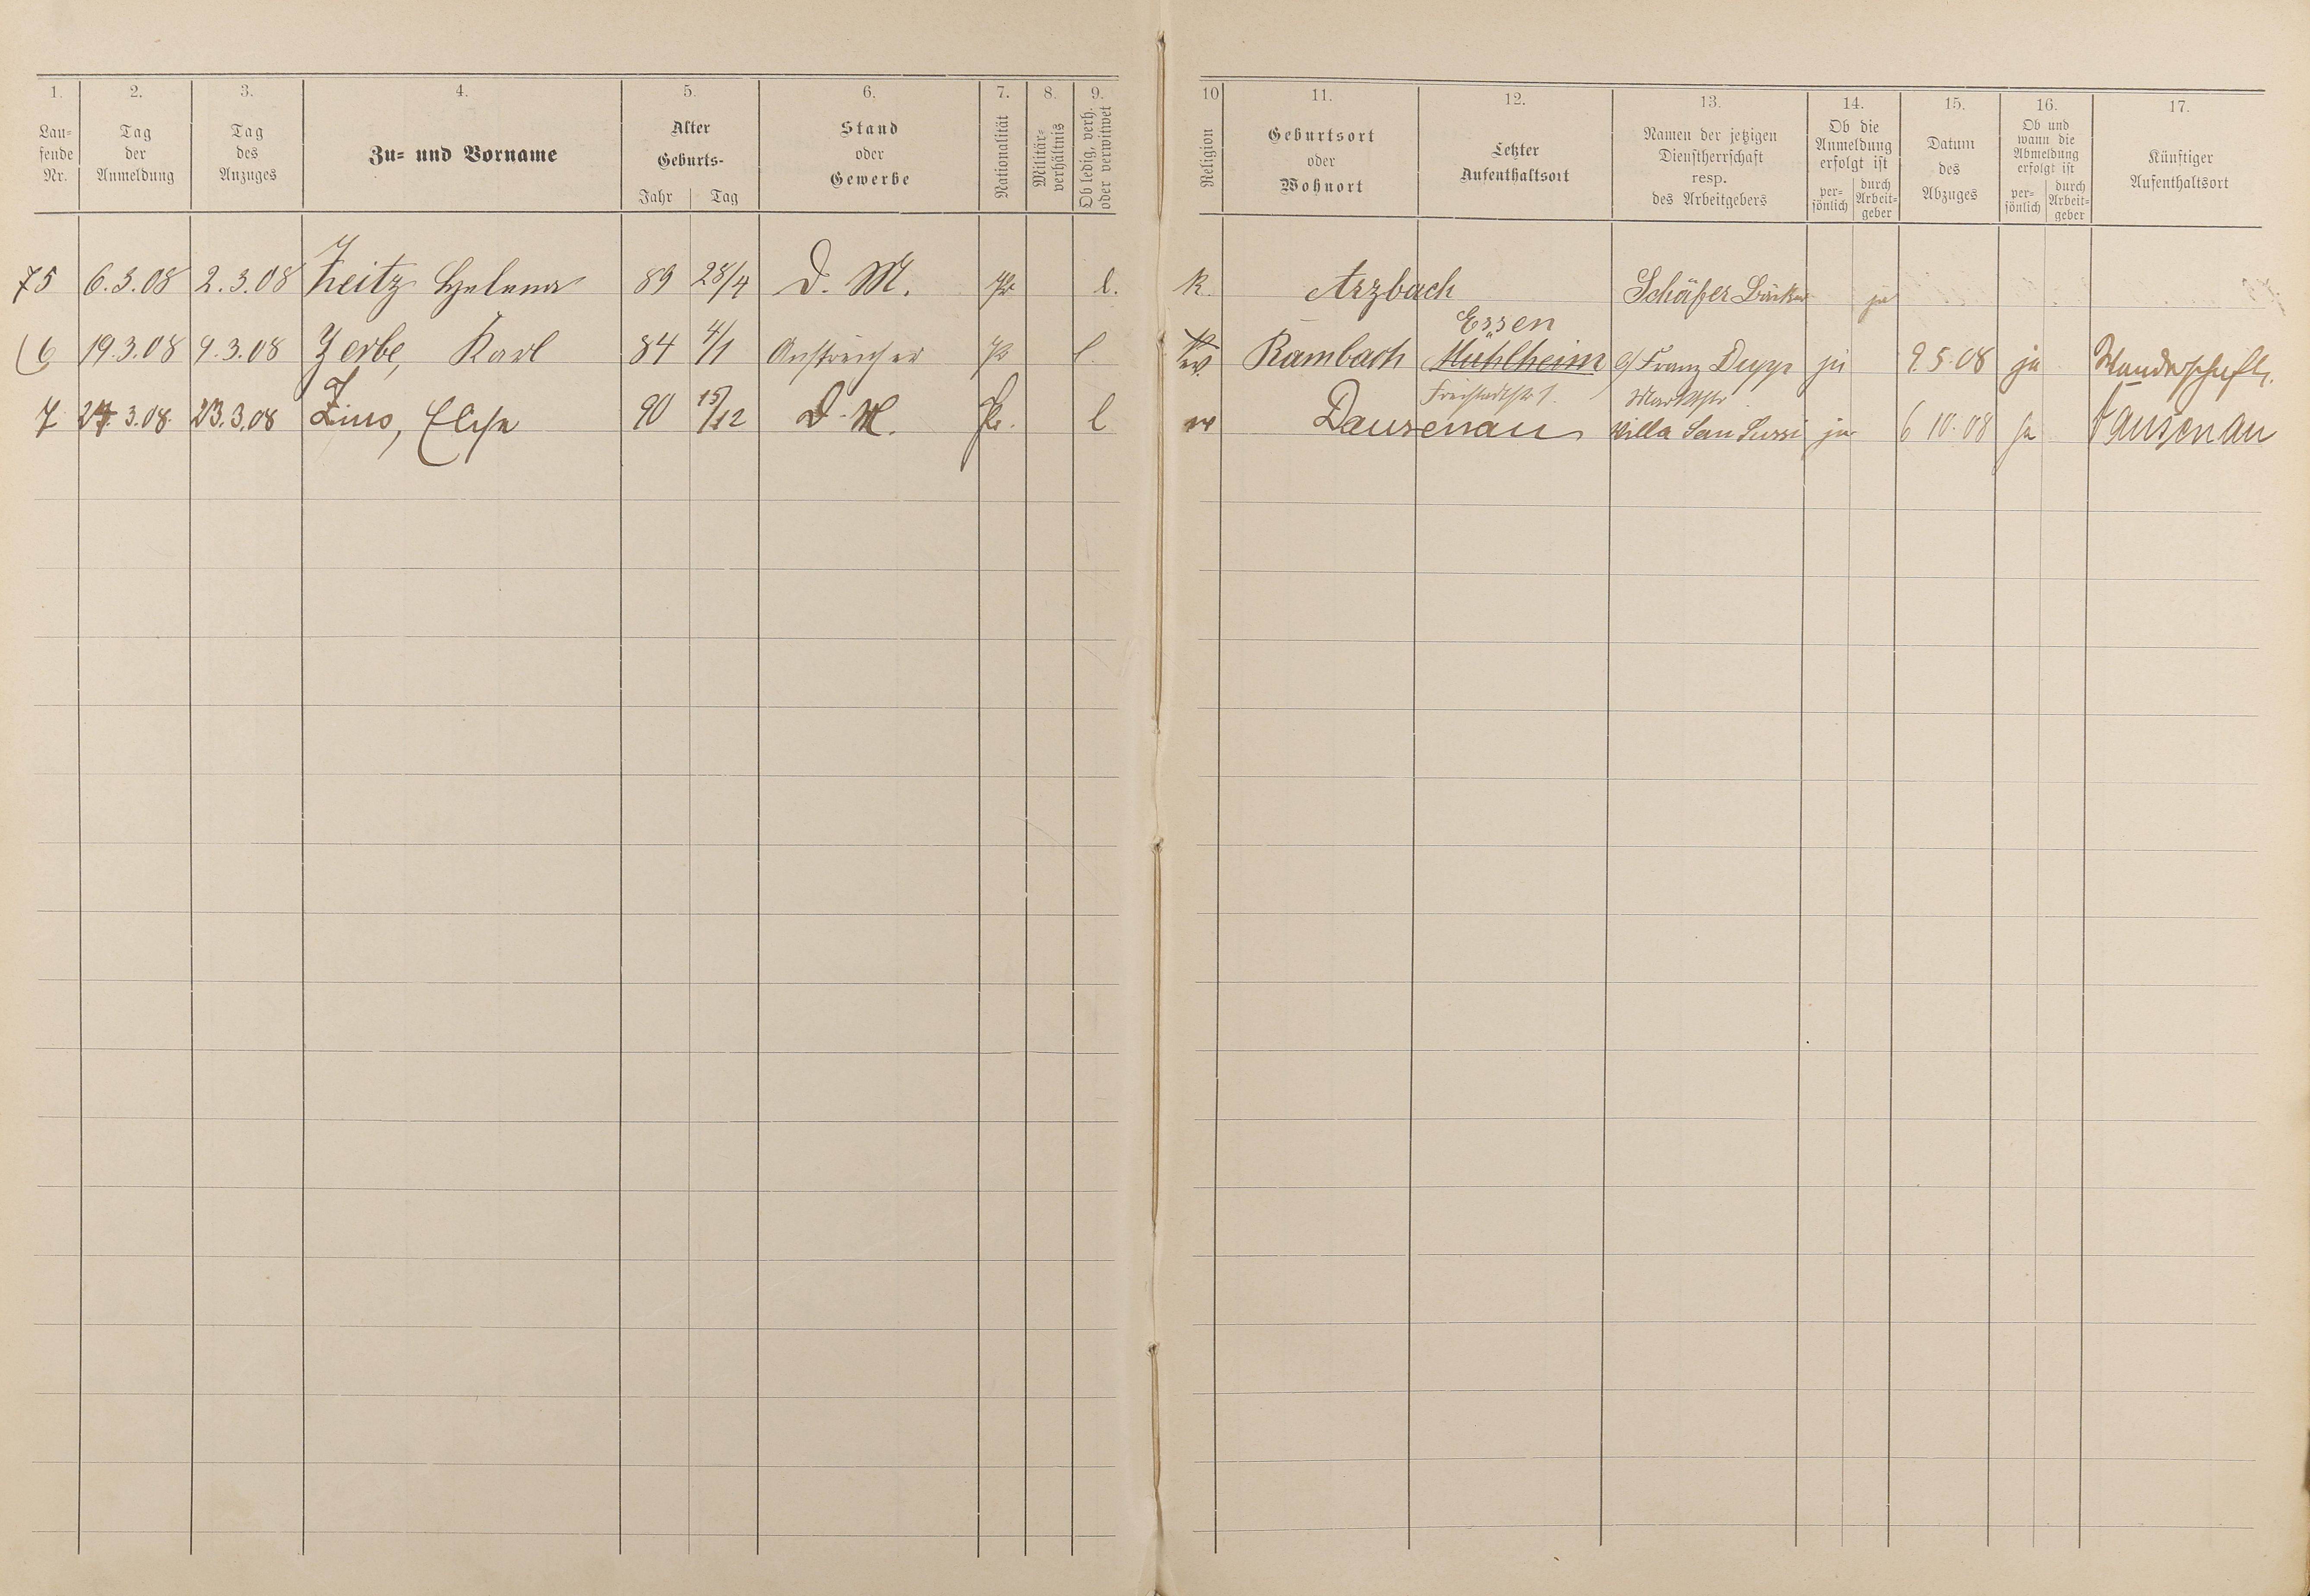 1. 2. 3. 4. 5. 6. 7. 8. 9. 10 11. 12. 13. 14. 15. 16. 17.
Lau=
fende
Nr.
Tag
der
Anmeldung
Tag
des
Anzuges
Zu= und Vorname
Alter
Geburts-
Jahr Tag
Stand
oder
Gewerbe
Nationalität
Militär-
verhältnis
Ob ledig, verh.
oder verwitwet
Religion
Geburtsort
oder
Wohnort
Letzter
Aufenthaltsort
Namen der jetzigen
Dienstherrschaft
resp.
des Arbeitgebers
Ob die
Anmeldung
erfolgt ist
per-
sönlich
durch
Arbeit=
geber
Datum
des
Abzuges
Ob und
wann die
Abmeldung
erfolgt ist
per-
sönlich
durch
Arbeit=
geber
Künftiger
Aufenthaltsort
75 6.3.08 2.3.08 Zeitz Helena 89 28/4 D. M. Pr l. K. Arzbach Schäfer Bäcker ja
Essen
6 19.3.08 9.3.08 Zerbe, Karl 84 4/1 Anstreicher Pr l. ev. Rambach Mühlheim Franz Dupp ja 9.5.08 ja Wanderschaft.
7 24.3.08. 23.3.08 Zins, Elise 90 15/12 D. M. Pr. l Dausenau Villa San Sussi ja 6 10.08 ja Dausenau